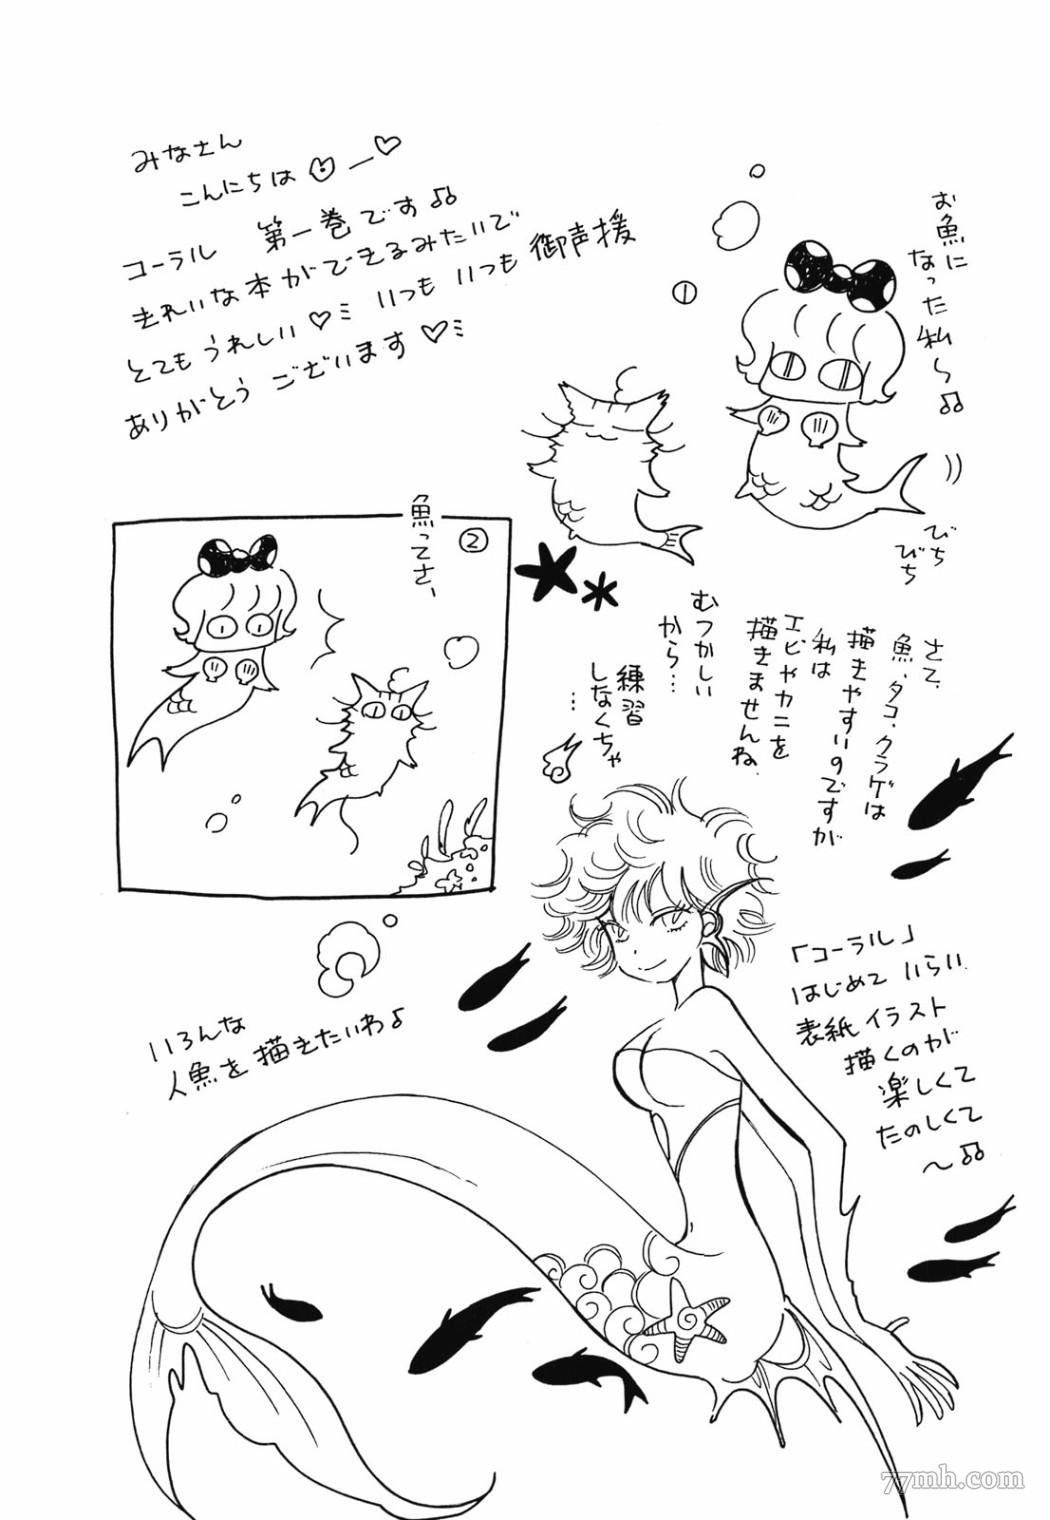 みなさん
こんにちは ー♡
コーラル 第一巻です♫
きれいな本ができるみたいで
とてもうれしい♡ミ いつもいつも御声援
ありがとうございます♡ミ
お魚に
なった私ら♫
①
びち
びち
魚ってさ、
②
さて、
魚、タコ、クラゲは
描きやすいのですが
私は
エビやカニを
描きませんね。
むつかしい
から…
練習
しなくちゃ
…
「コーラル」
はじめて いらい
表紙イラスト
描くのが
楽しくて
たのしくて
〜♫
いろんな
人魚を描きたいわ♪
77mh.com